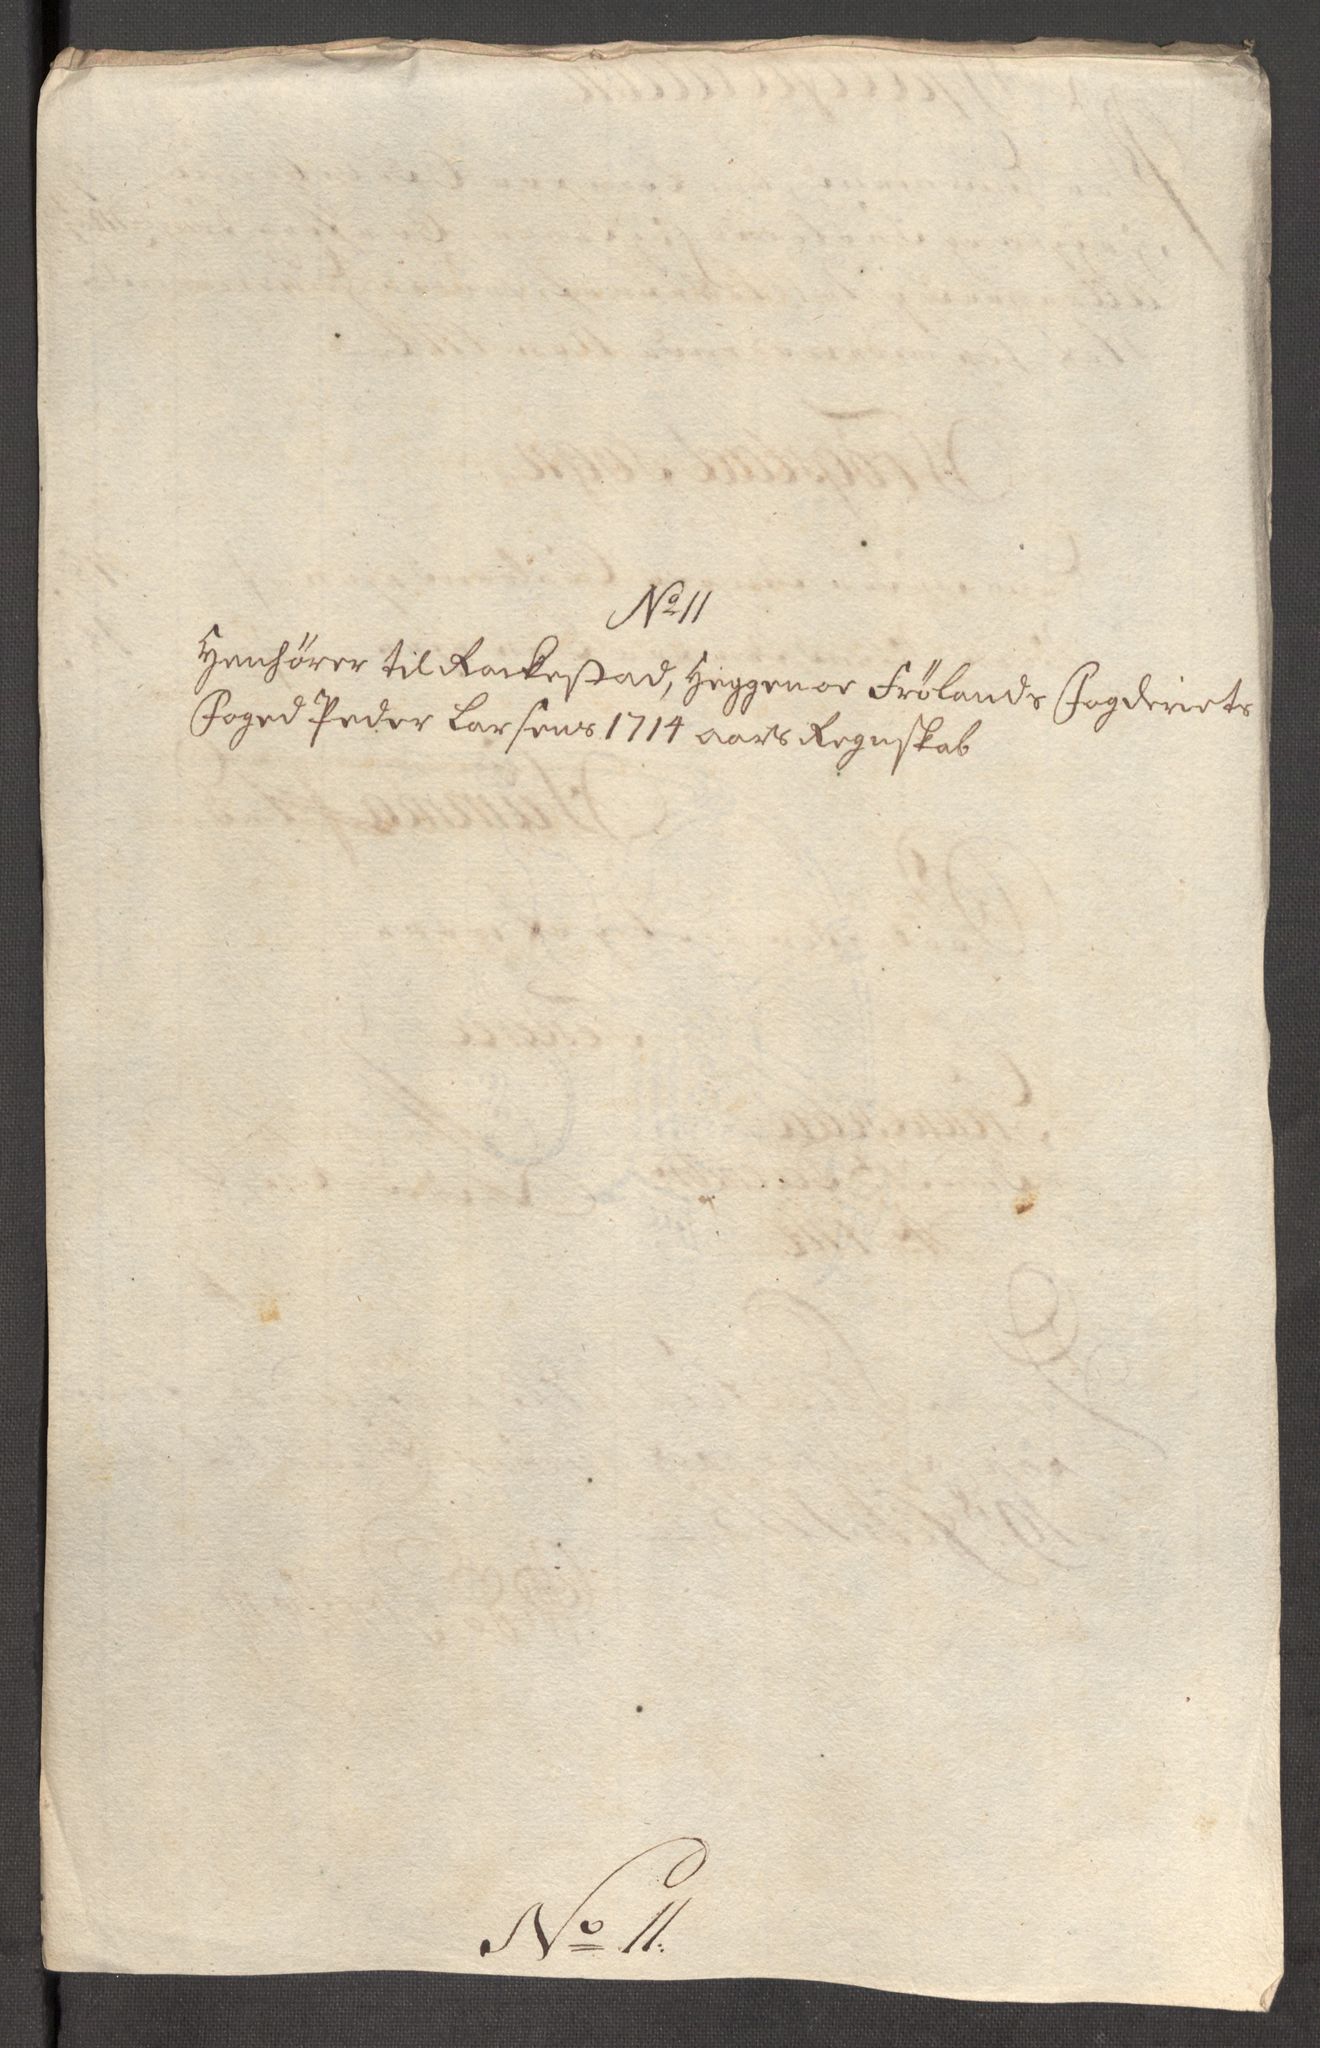 No 11
Henhörer til Rackestad, Heggen oc Frölands Fogderiets
Foged Peder Larsens 1714 aars Regnskab
No 11.